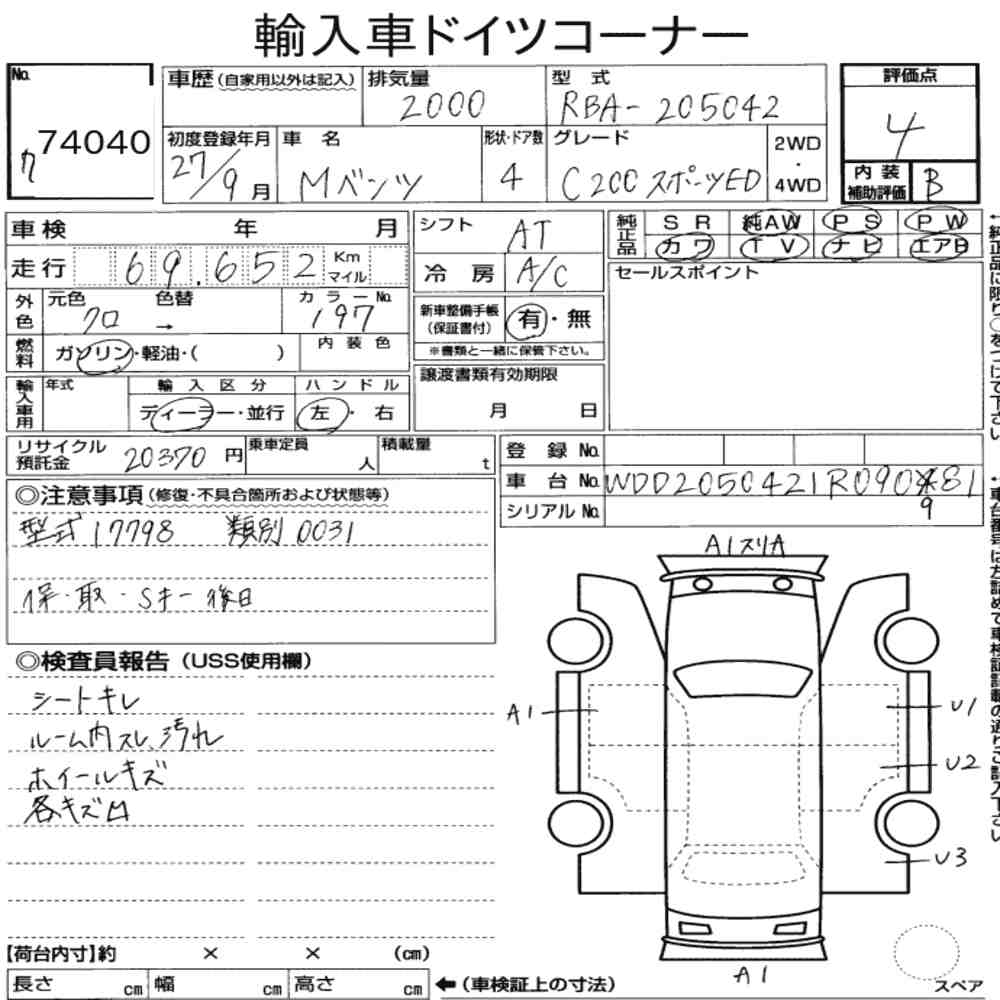 輸入車ドイツコーナー
No.
ワ 74040
車歴 (自家用以外は記入)
排気量 2000
型式 RBA-205042
評価点 4
初度登録年月 27/9月
車名 Mベンツ
形状・ドア数 4
グレード C200 スポーツED
2WD・4WD
内装補助評価 B
車検 年 月
シフト AT
純正品 SR 純AW PS PW
カワ TV ナビ エアB
走行 69.652 Km マイル
冷房 A/C
セールスポイント
外色 元色 クロ 色替 → カラーNo. 197
新車整備手帳 (保証書付) 有・無
※書類と一緒に保管下さい。
燃料 ガソリン・軽油・( ) 内装色
譲渡書類有効期限
月 日
輸入車用 年式 輸入区分 ハンドル
ディーラー・並行 左・右
リサイクル預託金 20370円 乗車定員 人 積載量 t
登録No.
車台No. WDD2050421R090*81
9
シリアルNo.
◎注意事項 (修復・不具合箇所および状態等)
型式 17798 類別 0031
保・取・Sキー後日
◎検査員報告 (USS使用欄)
シートキレ
ルーム内スレ、汚れ
ホイールキズ
各キズ凹
A1スリA
A1
U1
U2
U3
A1
スペア
【荷台内寸】約 × × (cm)
長さ cm 幅 cm 高さ cm
←(車検証上の寸法)
←純正品に限り○をつけて下さい